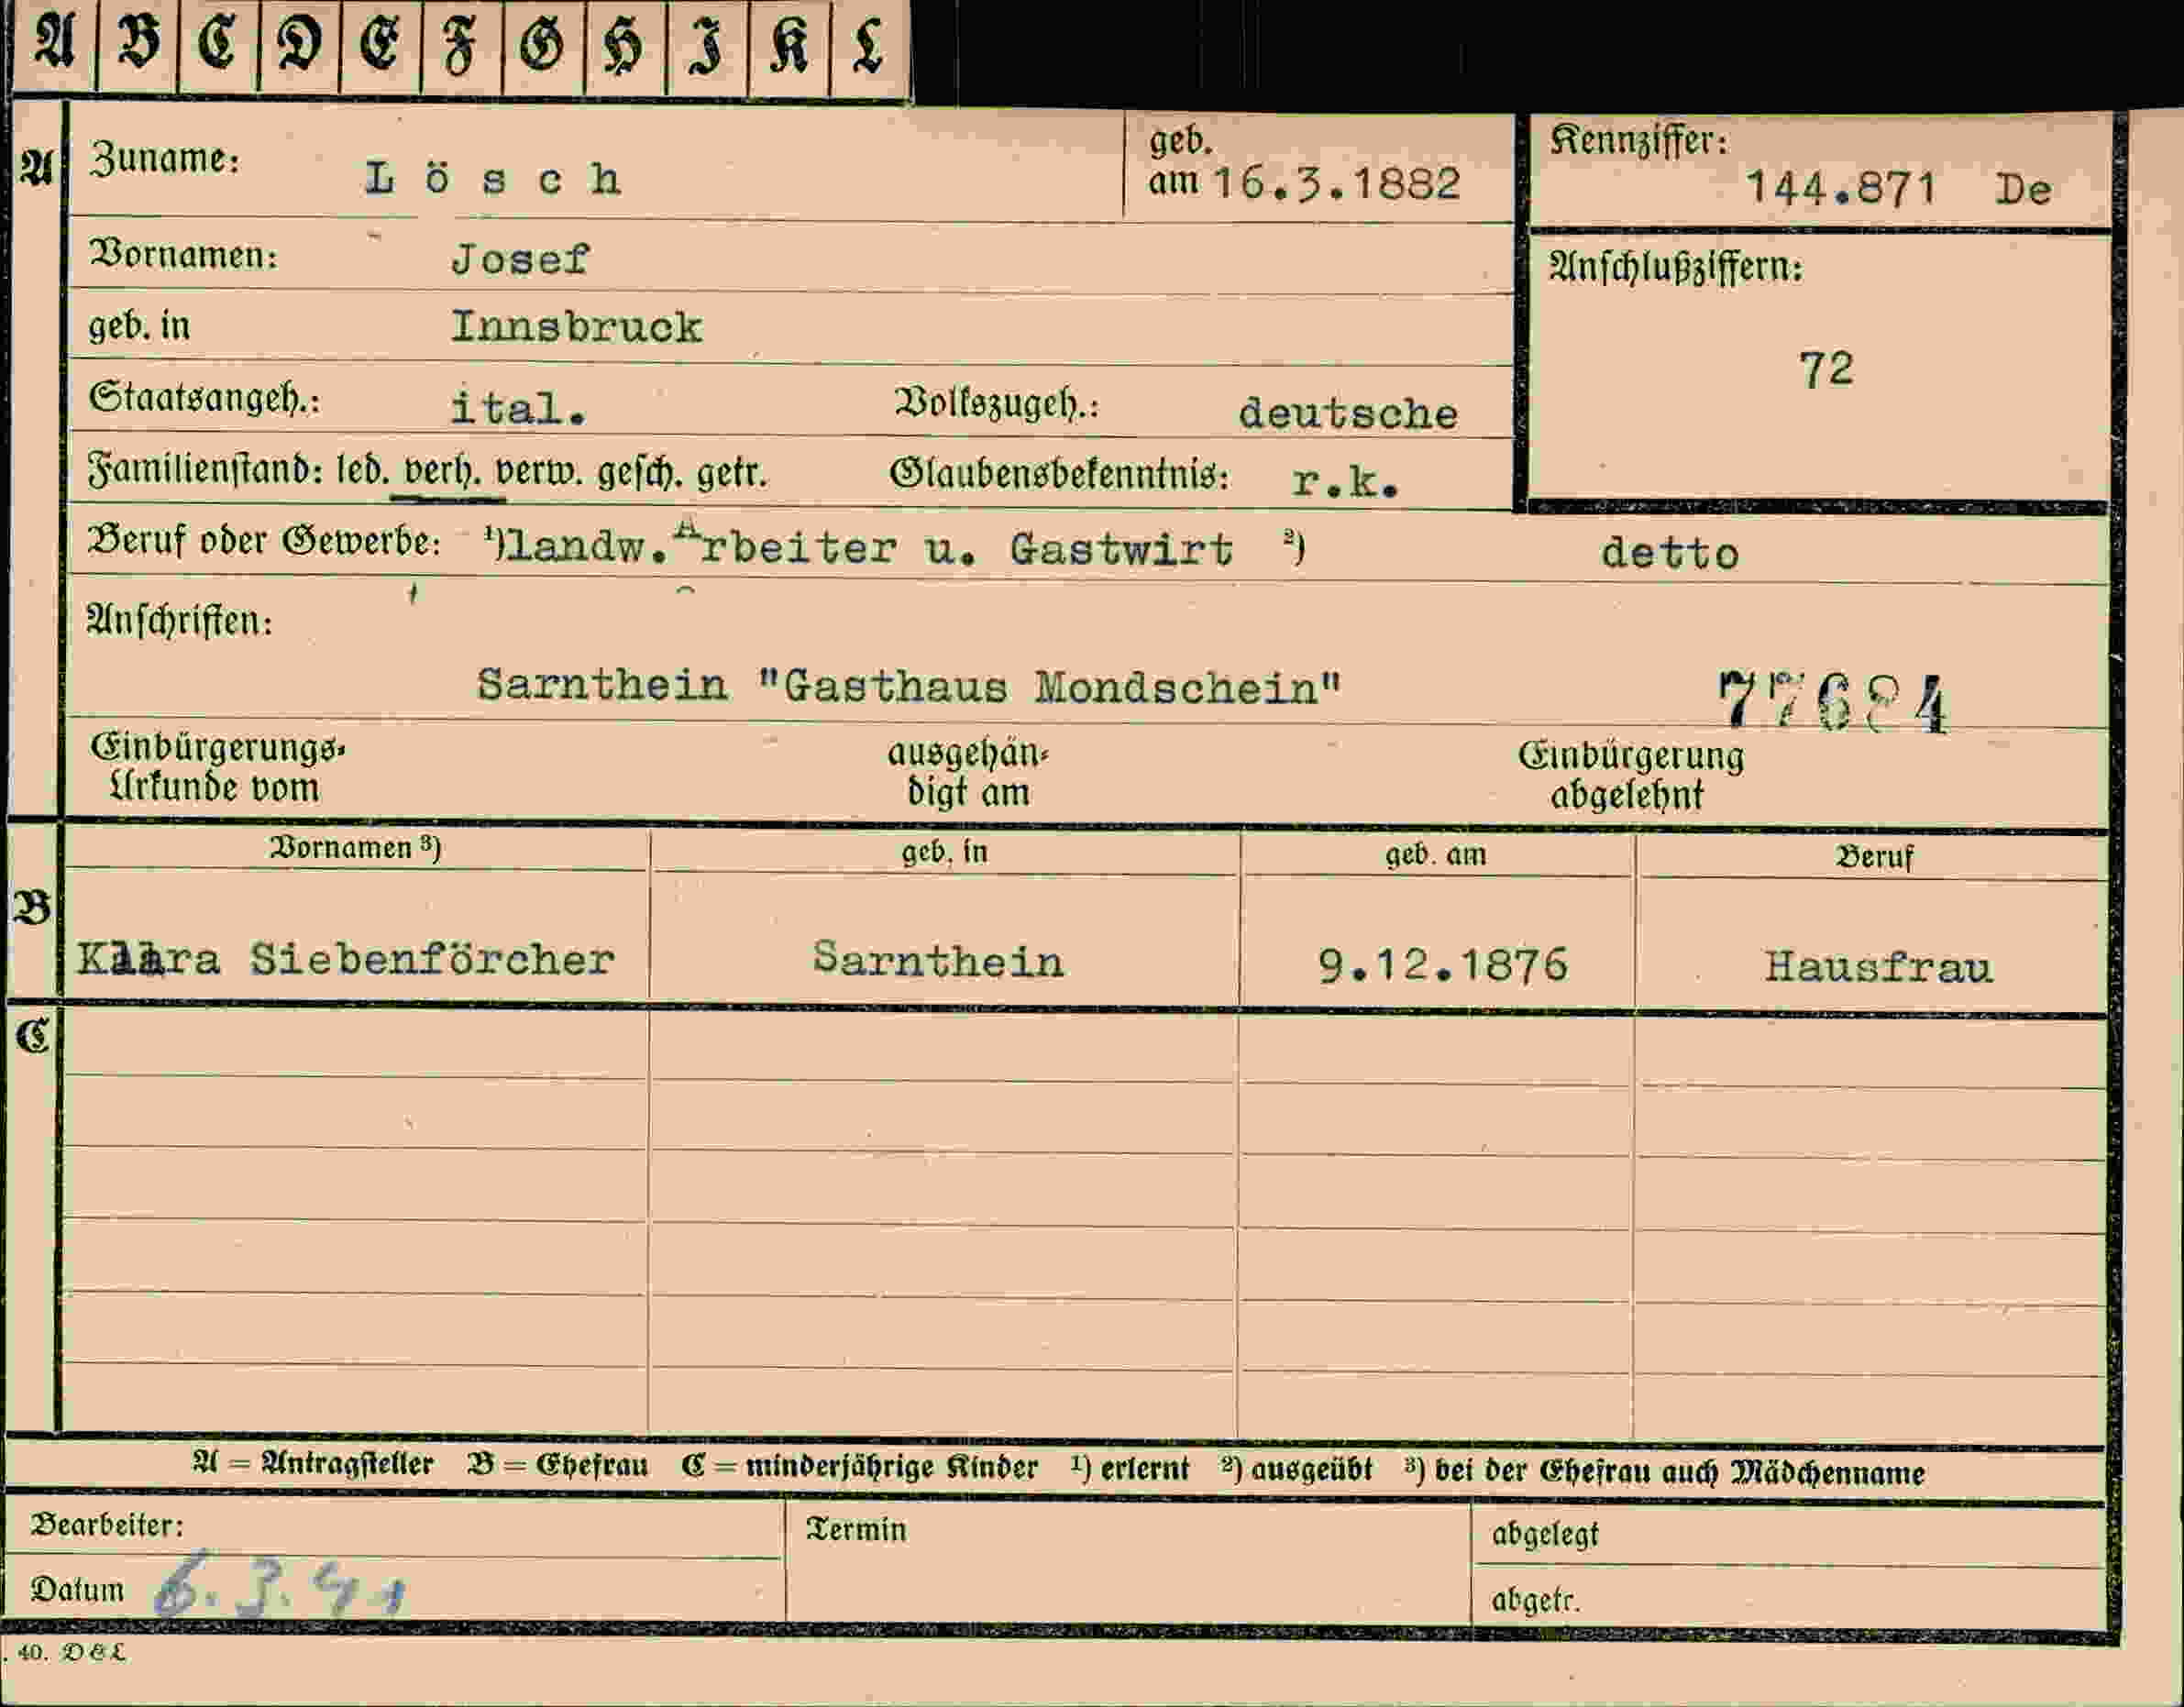 A B C D E F G H I K L
A Zuname: Lösch geb. am 16.3.1882 Kennziffer: 144.871 De
Vornamen: Josef Anschlußziffern:
geb. in Innsbruck 72
Staatsangeh.: ital. Volkszugeh.: deutsche
Familienstand: led. verh. verw. gesch. getr. Glaubensbekenntnis: r.k.
Beruf oder Gewerbe: ¹)landw.Arbeiter u. Gastwirt ²) detto
Anschriften:
Sarnthein "Gasthaus Mondschein" 77684
Einbürgerungs- ausgehän- Einbürgerung
Urkunde vom digt am abgelehnt
Vornamen ³) geb. in geb. am Beruf
B
Klara Siebenförcher Sarnthein 9.12.1876 Hausfrau
C
A = Antragsteller B = Ehefrau C = minderjährige Kinder ¹) erlernt ²) ausgeübt ³) bei der Ehefrau auch Mädchenname
Bearbeiter: Termin abgelegt
Datum 6.3.41 abgetr.
. 40. D & L